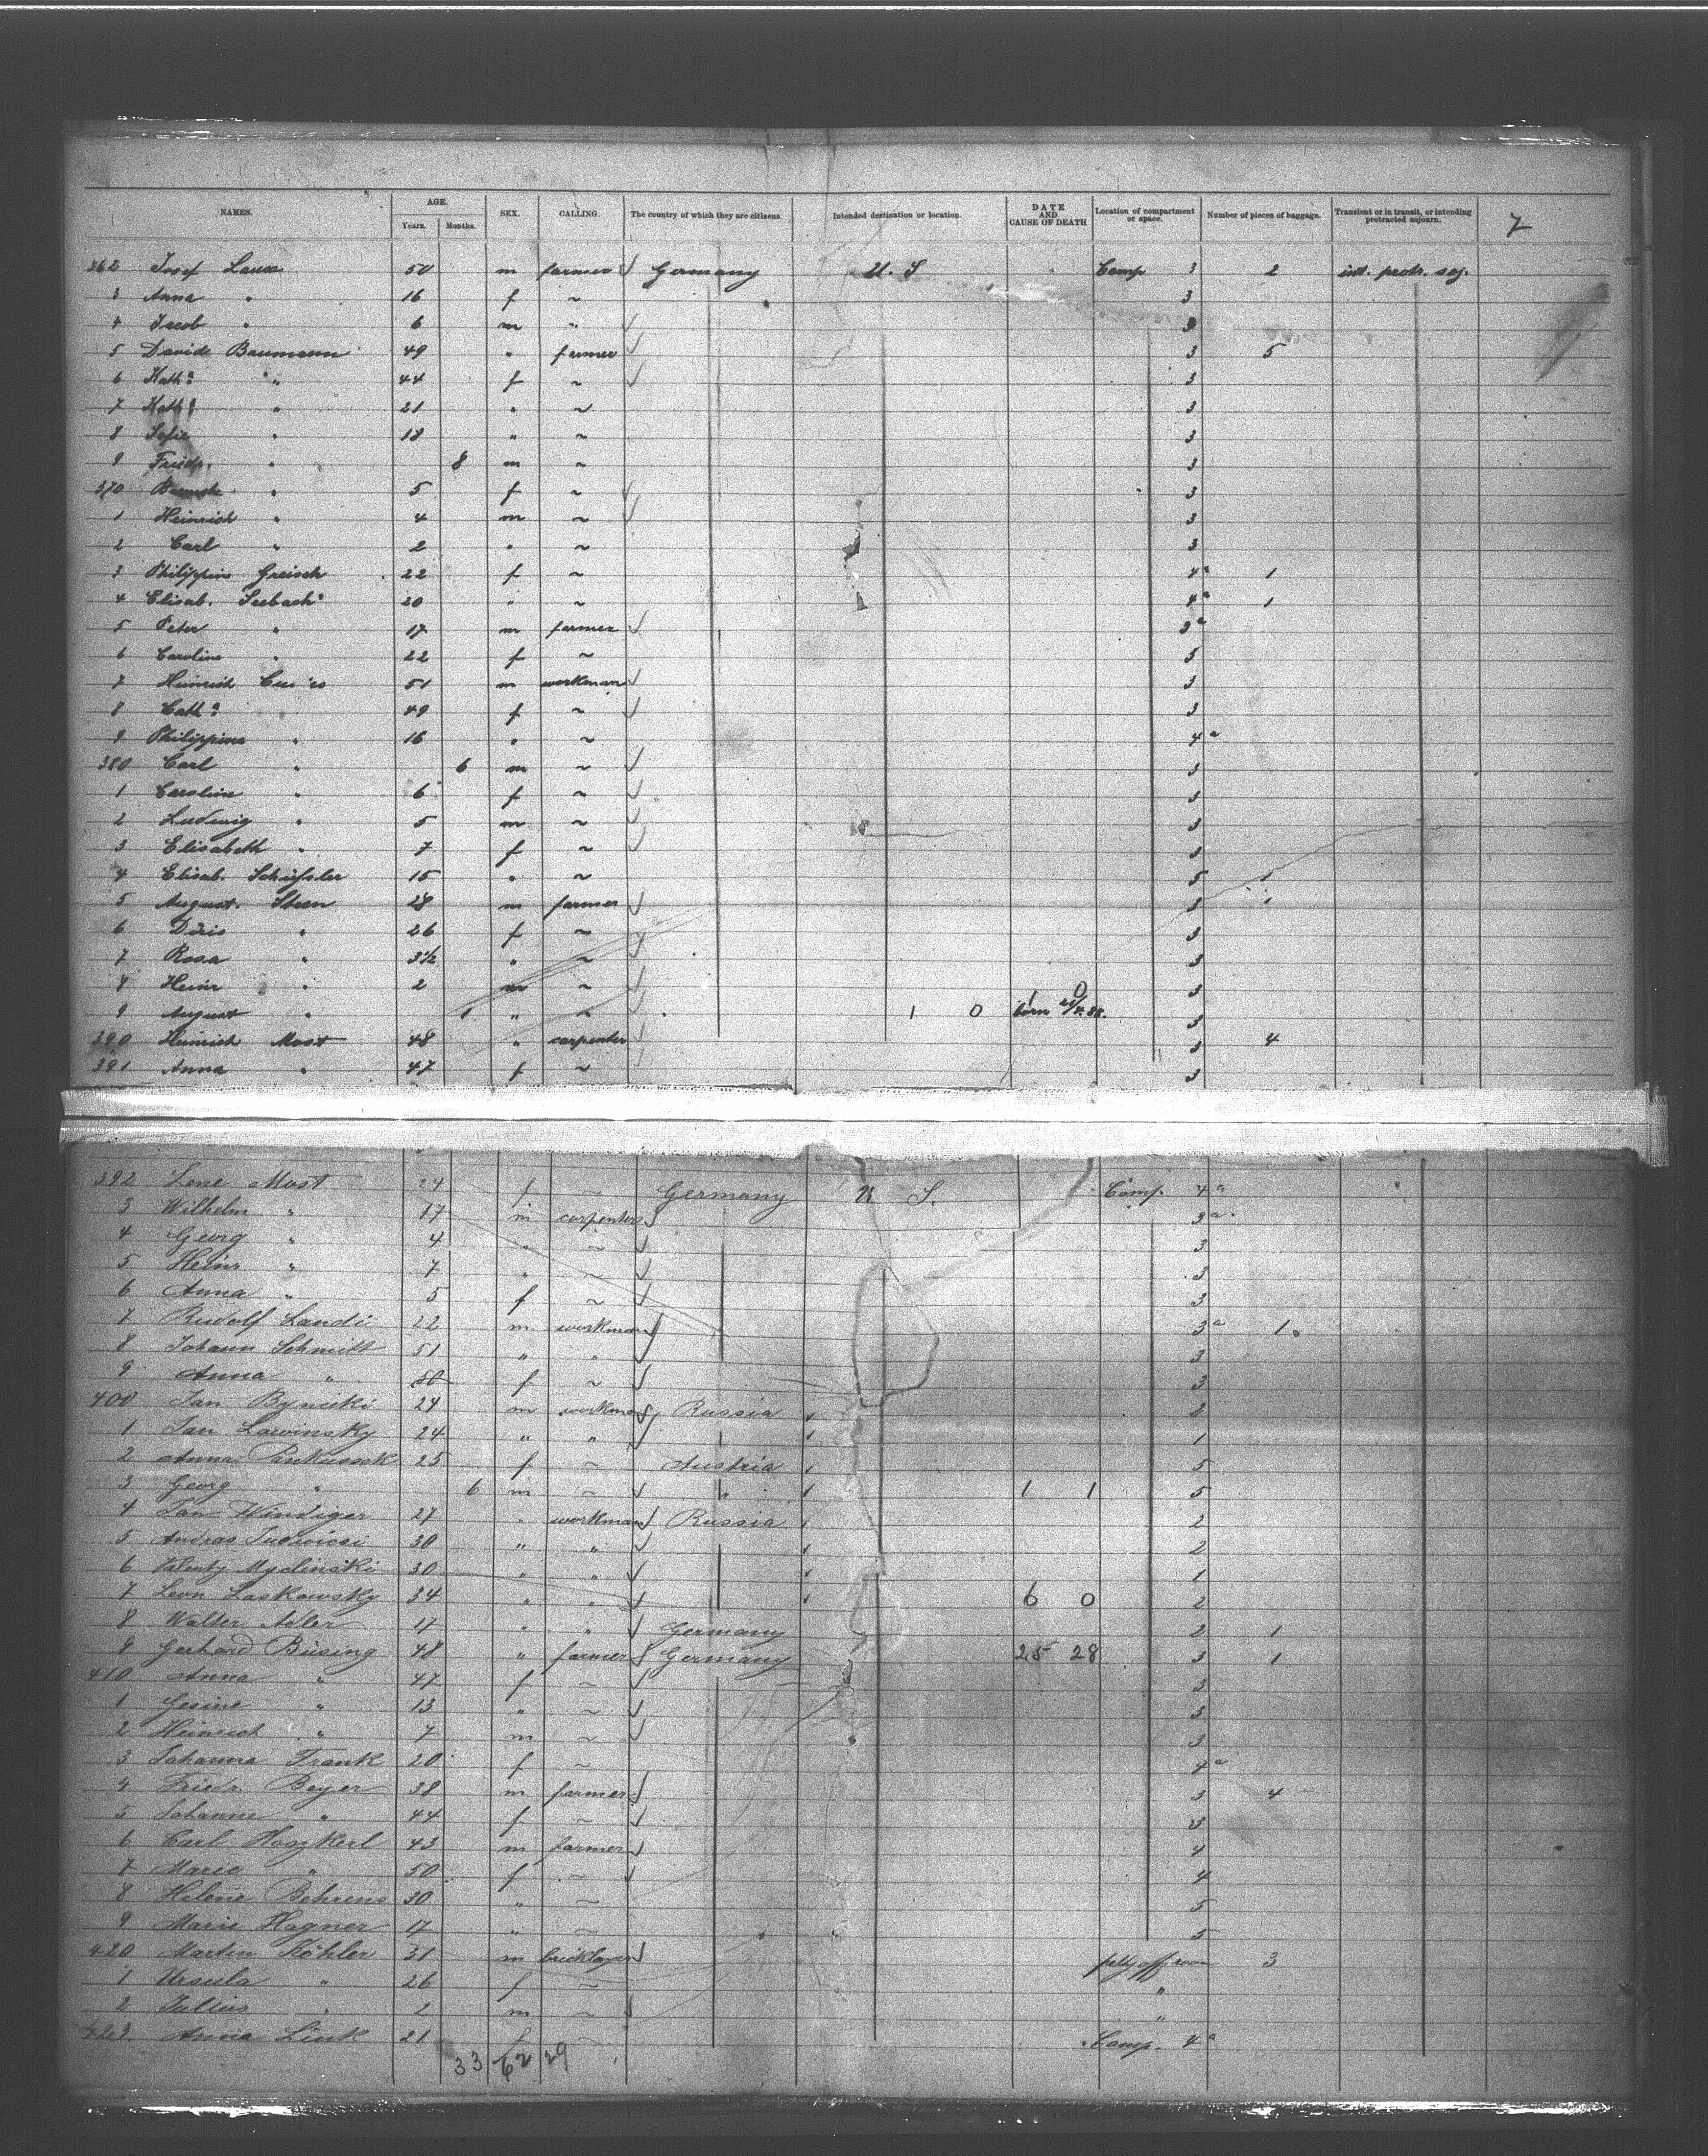 NAMES. AGE. Years. Months. SEX. CALLING. The country of which they are citizens. Intended destination or location. DATE AND CAUSE OF DEATH Location of compartment or space. Number of pieces of baggage. Transient or in transit, or intending protracted sojourn. 7
362 Josef Laux 50 m farmer Germany U. S Comp 3 2 int. protr. soj.
3 Anna " 16 f ~ 3
4 Jacob " 6 m " 3
5 Davids Baumann 49 " farmer 3 5
6 Kath.a " 44 f ~ 3
7 Kath.a " 21 " ~ 3
8 Sofie " 18 " ~ 3
9 Friedr. " 8 m ~ 3
370 " 5 f ~ 3
1 Heinrich " 4 m ~ 3
2 Carl " 2 " ~ 3
3 Philippine Greisch 22 f ~ 4a 1
4 Elisab. Seebach 20 " ~ 4a 1
5 Peter " 17 m farmer 3a
6 Caroline " 22 f ~ 5
7 Heinrich 51 m workman 3
8 Cath.a 49 f ~ 3
9 Philippine " 16 " ~ 4a
380 Carl " 6 m ~ 3
1 Caroline " 6 f ~ 3
2 Ludwig " 5 m ~ 3
3 Elisabeth " 7 f ~ 3
4 Elisab. Schüssler 15 " ~ 5 1
5 August. Steen 28 m farmer 3 1
6 Dóris " 26 f ~ 3
7 Rosa " 3½ " ~ 3
8 Heinr " 2 m ~ 3
9 August " " ~ 1 0 born 3
390 Heinrich Most 48 " carpenter 3 4
391 Anna " 47 f ~ 3
392 Lene Most 24 f ~ Germany U S. Comp. 4a
3 Wilhelm " 17 m carpenter 3a
4 Georg " 4 " ~ 3
5 Heinr " 7 " ~ 3
6 Anna " 5 f ~ 3
7 Rudolf Landi 22 m workman 3a 1
8 Johann Schmitt 51 " " 3
9 Anna " 50 f ~ 3
400 Jan Bynciki 24 m workman Russia 2
1 Jan Lawinsky 24 " " 1
2 Anna Pankussek 25 f ~ Austria 5
3 Georg " 6 m ~ " 1 1 5
4 Jan Windiger 27 " workman Russia 2
5 Andras 30 " " 2
6 Valenty Myclinski 30 " " 1
7 Leon Laskowsky 34 " " 6 0 2
8 Walter Adler 17 " " Germany 2 1
9 Gerhard Büsing 48 " farmer Germany 25 28 3 1
410 Anna " 47 f ~ 3
1 Gesine " 13 " ~ 3
2 Heinrich " 7 m ~ 3
3 Johanna Frank 20 f ~ 4a
4 Friedr. Beyer 38 m farmer 3 4
5 Johanne " 44 f ~ 3
6 Carl Hagzkerl 43 m farmer 4
7 Marie " 50 f ~ 4
8 Helene Behrens 30 " ~ 5
9 Marie Hagner 17 " ~ 5
420 Martin Köhler 31 m bricklayer petty off room 3
1 Ursula " 26 f ~ "
2 Julius " 2 m ~ "
423 Anna Link 21 f ~ Comp. 4a
33 62 29